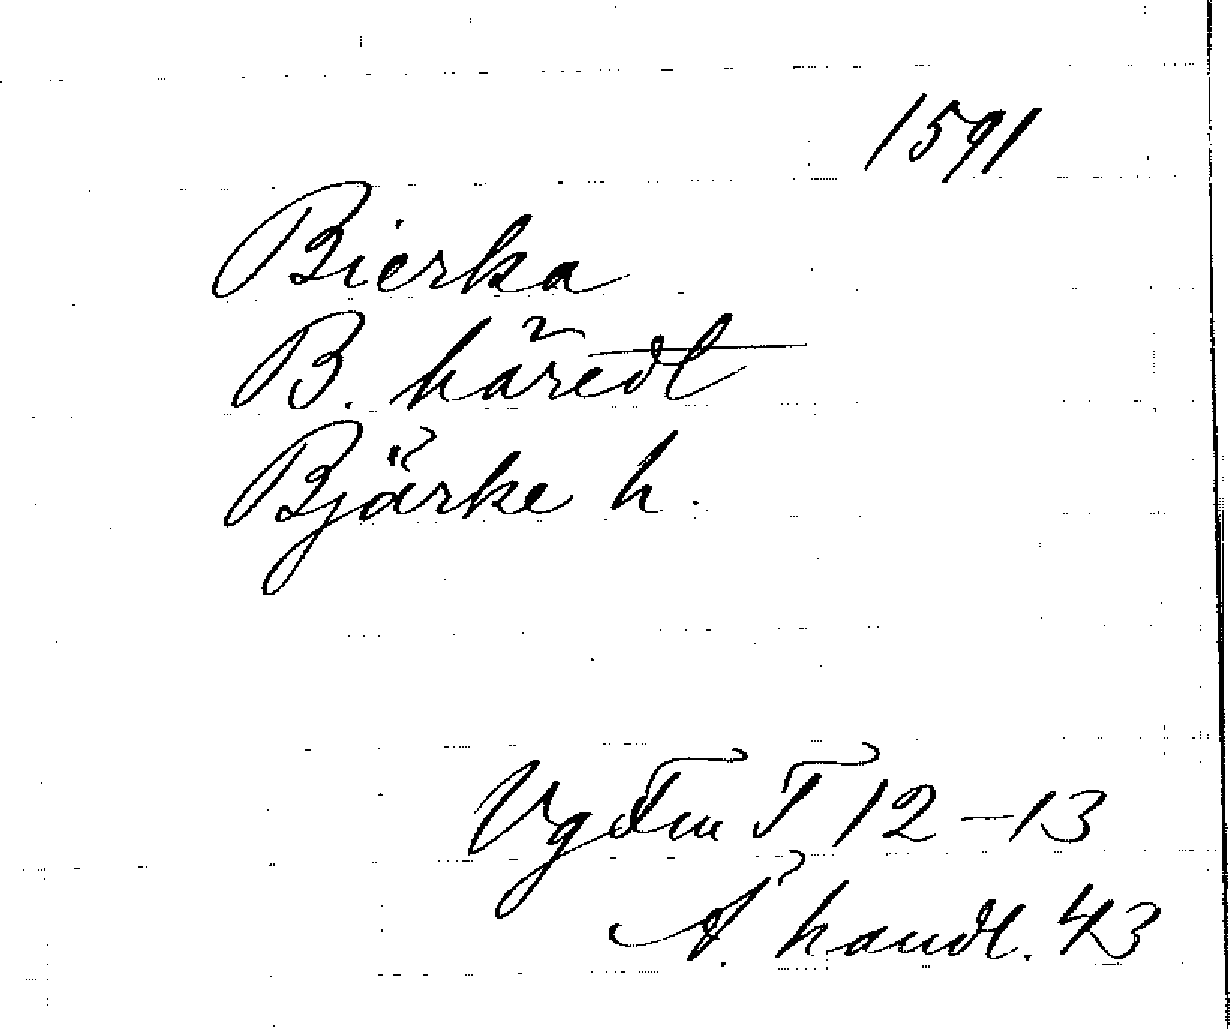 1591
Bierka
B. häredt
Bjärke h.
Vg Fm T 12-13
Å. handl. 43